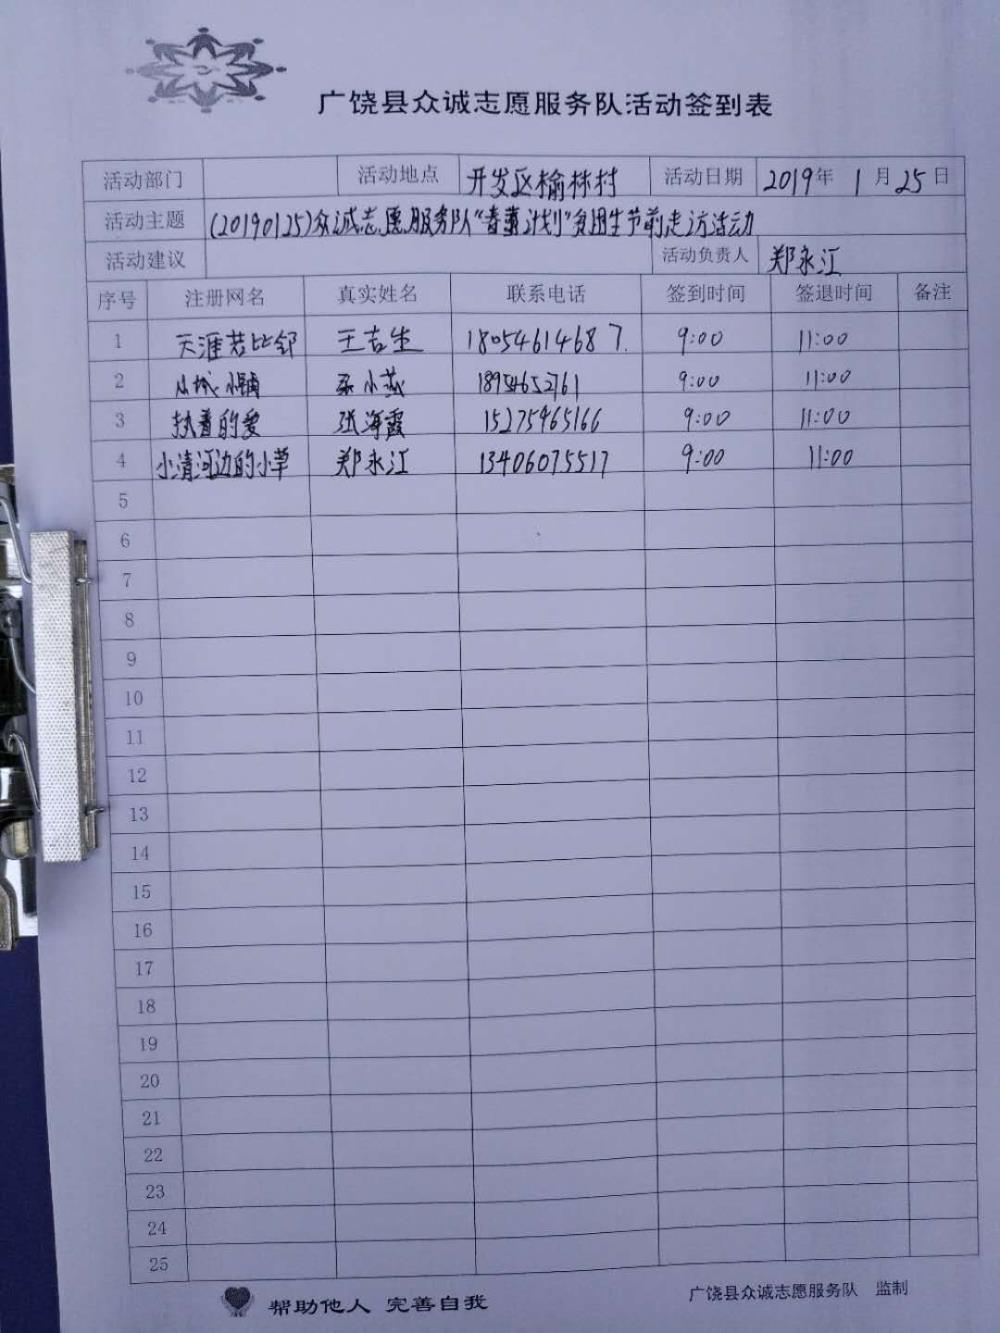 广饶县众诚志愿服务队活动签到表
活动部门 活动地点 开发区榆林村 活动日期 2019年 1月25日
活动主题 (20190125)众诚志愿服务队"春蕾计划"贫困生节前走访活动
活动建议 活动负责人 郑永江
序号 注册网名 真实姓名 联系电话 签到时间 签退时间 备注
1 天涯若比邻 王吉生 18054614687 9:00 11:00
2 小燕 18954652761 9:00 11:00
3 执着的爱 张海霞 15275465166 9:00 11:00
4 小清河边的小草 郑永江 13406075517 9:00 11:00
5
6
7
8
9
10
11
12
13
14
15
16
17
18
19
20
21
22
23
24
25
帮助他人 完善自我 广饶县众诚志愿服务队 监制